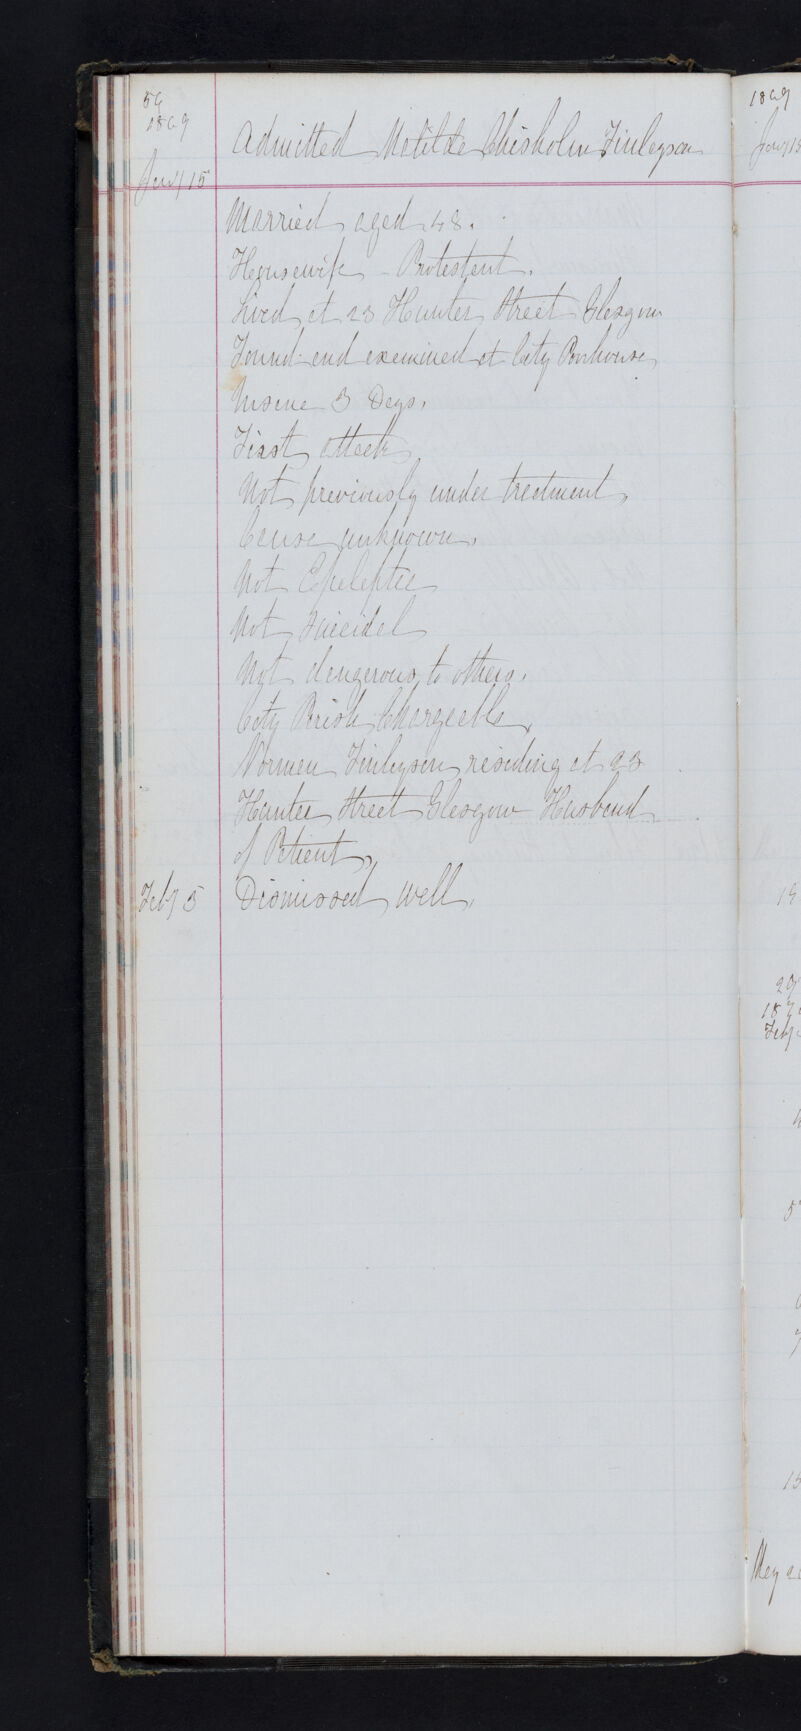 59
1869
Jany 15
Admitted Matilda Chisholm Finlayson
Married aged 48.
Housewife - Protestant.
Lived at 23 Hunter Street Glasgow
Found and examined at City Poorhouse
Insane 3 Days.
First attack
Not previously under treatment,
Cause unknown.
Not Epileptic
Not Suicidal
Not dangerous to others.
City Parish Chargeable,
Norman Finlayson residing at 23
Hunter Street Glasgow Husband
of Patient,
Feby 5 Dismissed well,
1869
Jany 18